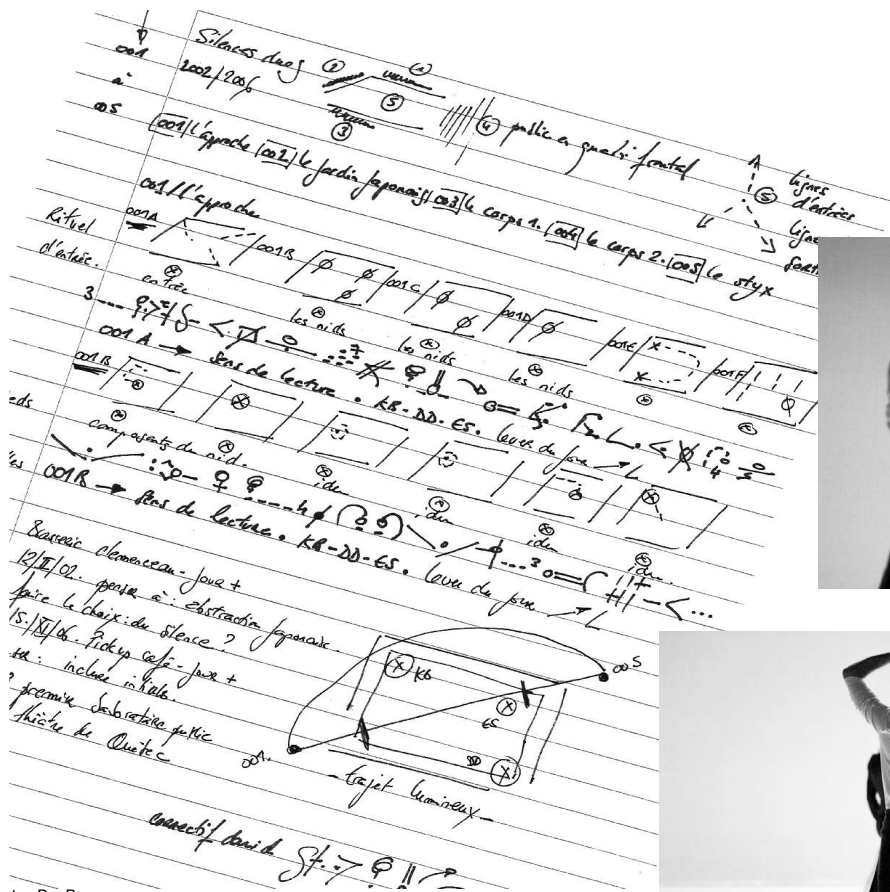 001
à
005
Silences duos ② ①
2002/2006 ⑤
③ ④ public en quadri frontal
001/l'approche 002/le jardin japonais/003/le corps 1. 004/le corps 2. 005/le styx
⑤ lignes
d'entrées
001/l'approche
Rituel
d'entrée.
001A /001B /001C /001D /001E /001F
entrée les nids les nids les nids
3
001A → sens de lecture . KB-DD-ES. lever du jour → L
001B
composants du nid. idem idem idem idem.
001B → sens de lecture . KB-DD-ES. lever du jour → L
Brasserie Clemenceau - jour +
12/II/02. penser à : abstraction japonaise.
faire le choix du silence ?
15./XI/06. Pickup café - jour +
premier laboratoire public
théâtre de Québec
KB
ES
DD
001.
005
- trajet lumineux -
correctif david